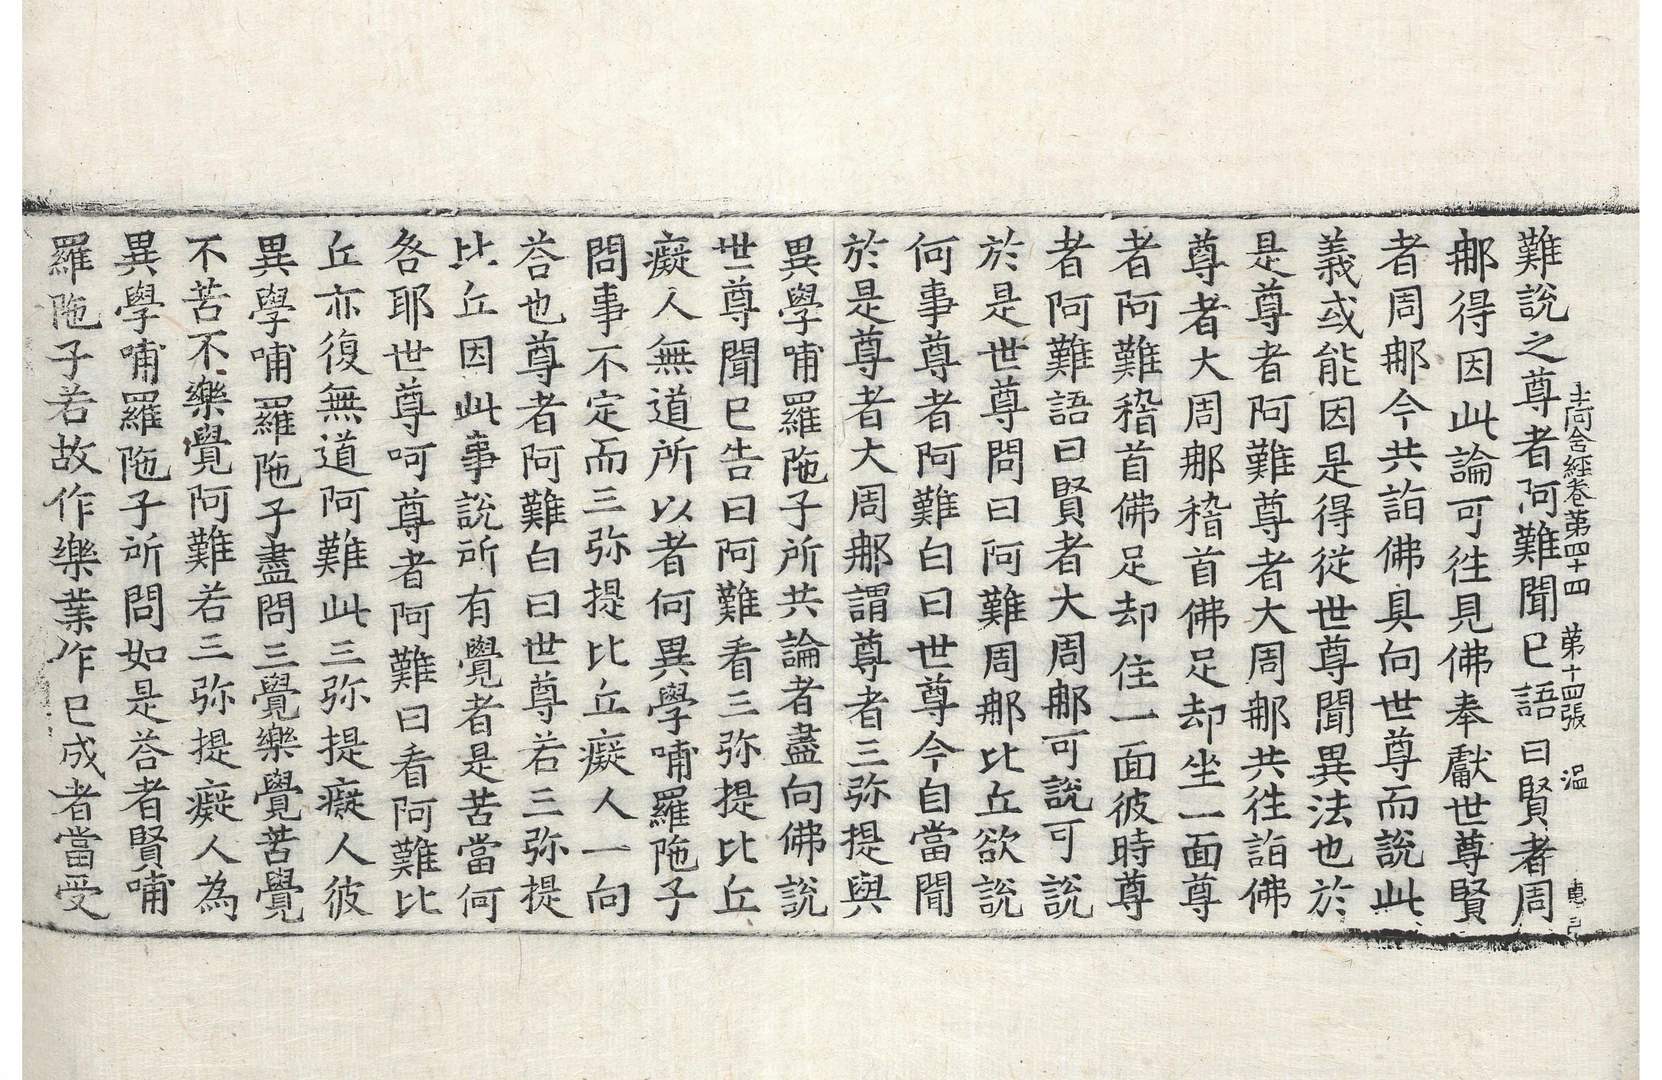 中阿含經卷第四十四 第十四張 溫
難說之尊者阿難聞已語曰賢者周
那得因此論可往見佛奉獻世尊賢
者周那今共詣佛具向世尊而說此
義或能因是得從世尊聞異法也於
是尊者阿難尊者大周那共往詣佛
尊者大周那稽首佛足却坐一面尊
者阿難稽首佛足却住一面彼時尊
者阿難語曰賢者大周那可說可說
於是世尊問曰阿難周那比丘欲說
何事尊者阿難白曰世尊今自當聞
於是尊者大周那謂尊者三弥提與
異學哺羅陁子所共論者盡向佛說
世尊聞已告曰阿難看三弥提比丘
癡人無道所以者何異學哺羅陁子
問事不定而三弥提比丘癡人一向
荅也尊者阿難白曰世尊若三弥提
比丘因此事說所有覺者是苦當何
咎耶世尊呵尊者阿難曰看阿難比
丘亦復無道阿難此三弥提癡人彼
異學哺羅陁子盡問三覺樂覺苦覺
不苦不樂覺阿難若三弥提癡人為
異學哺羅陁子所問如是荅者賢哺
羅陁子若故作樂業作已成者當受